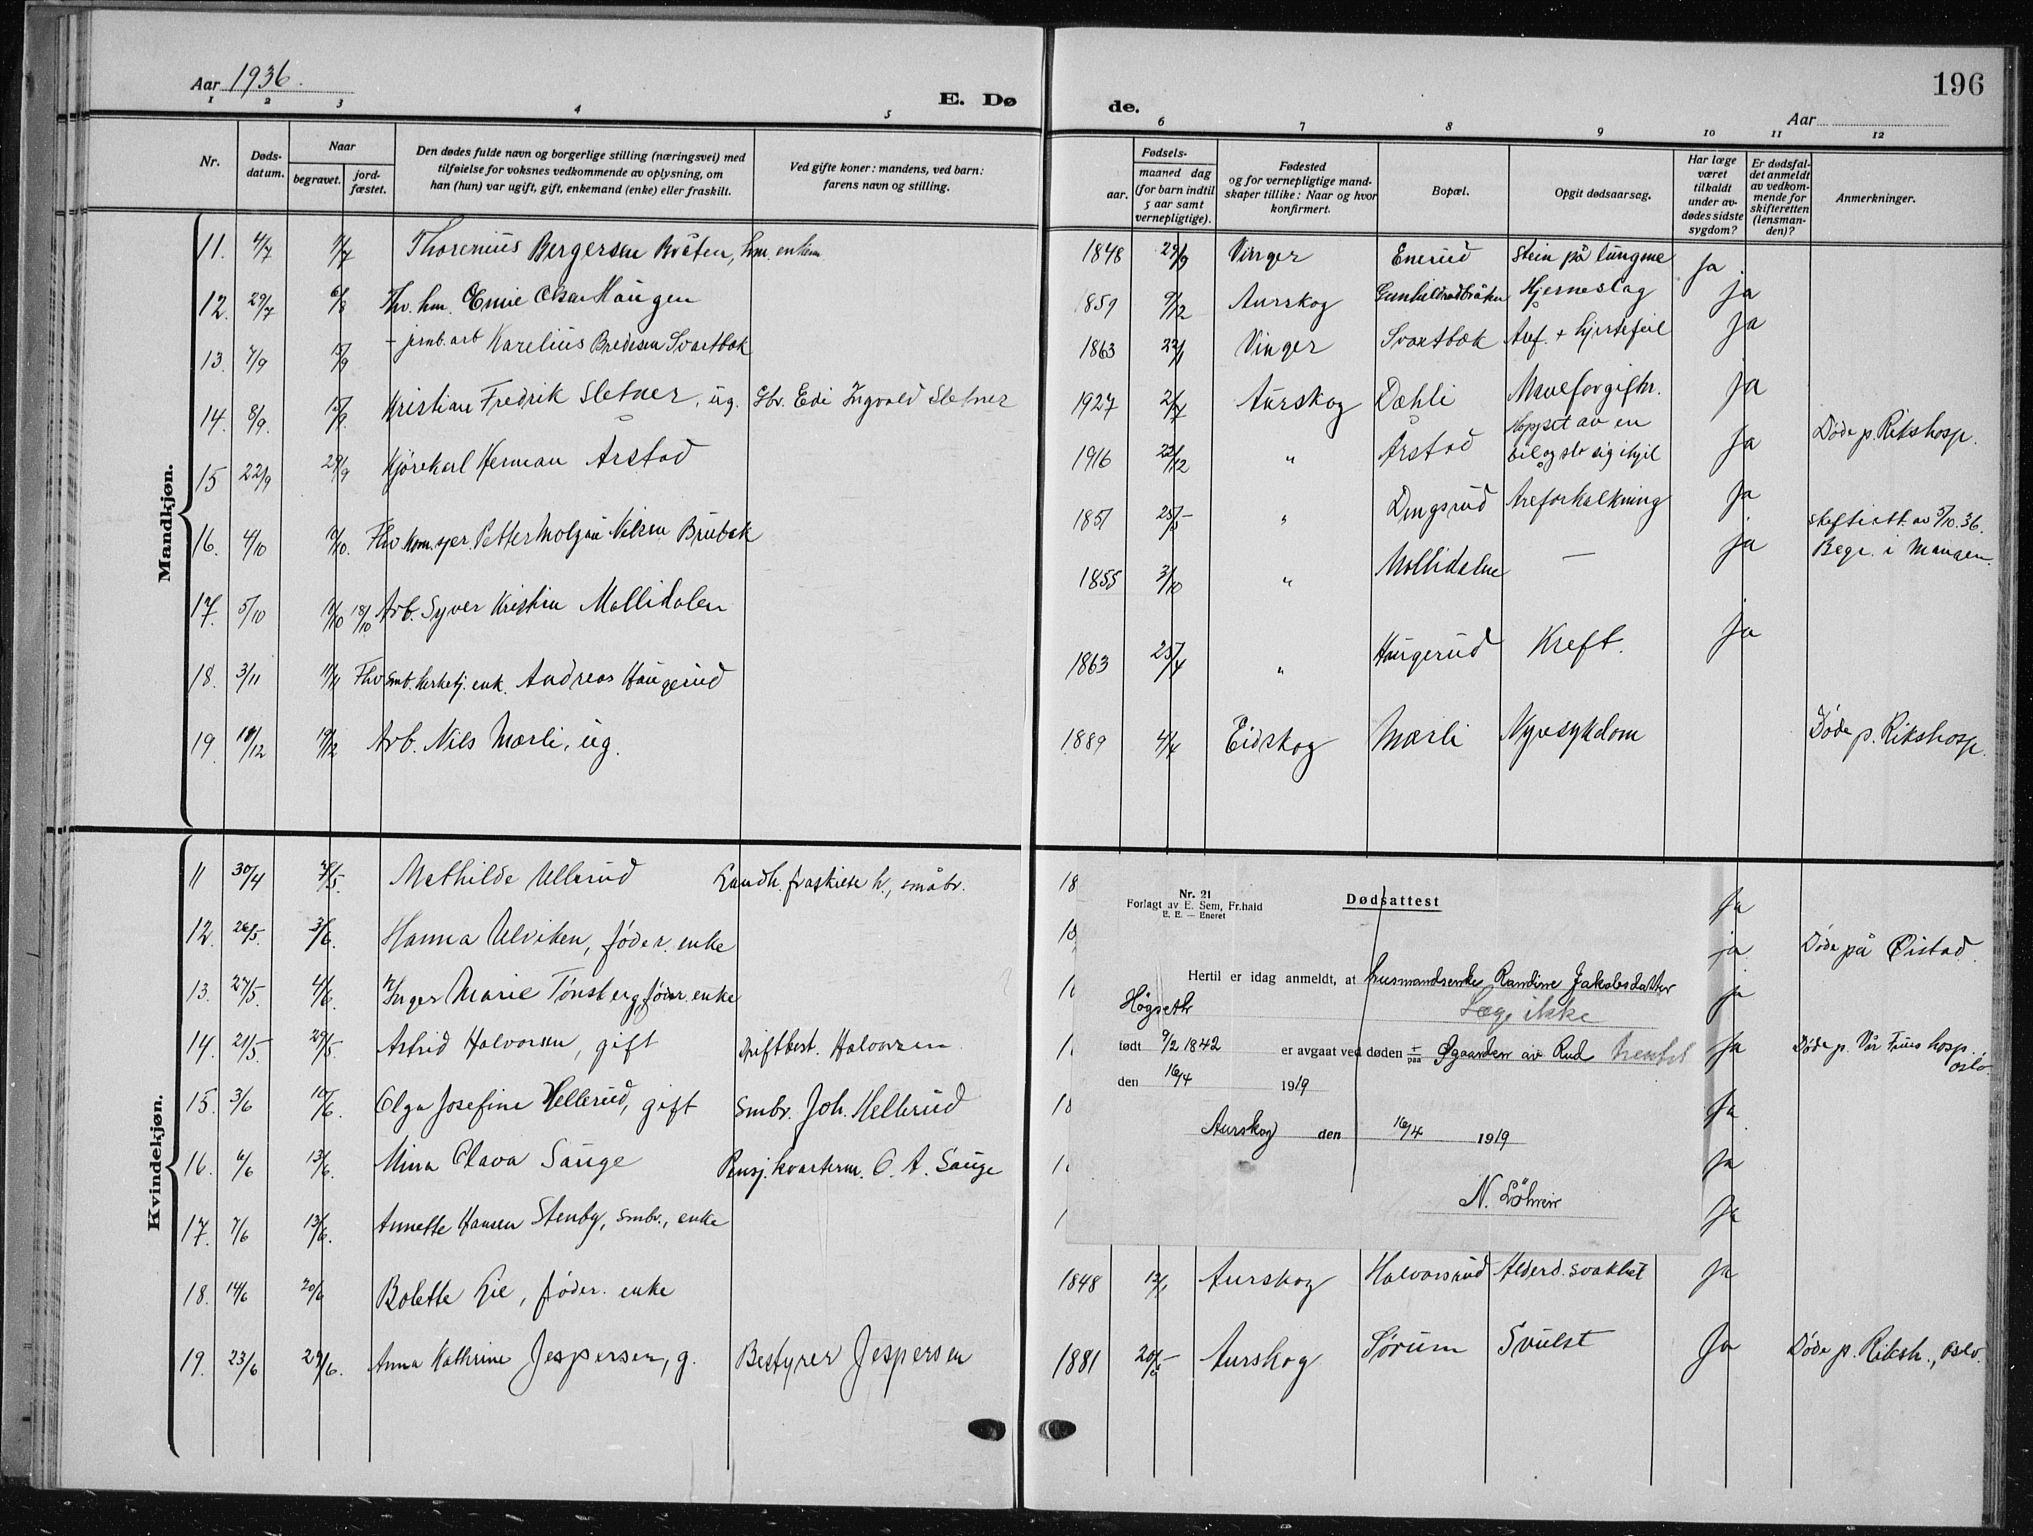 Aar 1936.
E. Dø
de.
Aar
196
1 2 3 4 5 6 7 8 9 10 11 12
Nr.
Døds-
datum.
Naar
begravet.
jord-
fæstet.
Den dødes fulde navn og borgerlige stilling (næringsvei) med
tilføielse for voksnes vedkommende av oplysning, om
han (hun) var ugift, gift, enkemand (enke) eller fraskilt.
Ved gifte koner: mandens, ved barn:
farens navn og stilling.
Fødsels-
aar.
maaned dag
(for barn indtil
5 aar samt
vernepligtige).
Fødested
og for vernepligtige mand-
skaper tillike: Naar og hvor
konfirmert.
Bopæl.
Opgit dødsaarsag.
Har læge
været
tilkaldt
under av-
dødes sidste
sygdom?
Er dødsfal-
det anmeldt
av vedkom-
mende for
skifteretten
(lensman-
den)?
Anmerkninger.
Mandkjøn.
11. 4/7 Thorenius Bergersen Bråten, enkem 1848 29/9 Vinger Enerud Stein på lungene Ja
12. 29/7 6/8 Fhv. hm. Emil Oskar Haugen 1859 9/12 Aurskog Hjerneslag Ja
13. 7/9 jernb.arb Karelius Bredesen Svartbæk 1863 Vinger Svartbæk Åref. + hjertefeil Ja
14. 8/9. Kristian Fredrik Sletner, ug. Gbr. Edi Ingvald Sletner 1927 2/7 Aurskog Dæhli Maveforgiftn. Ja
15 22/9 29/9 Kjørekarl Herman Årstad 1916 22/12 " Årstad Hoppet av en
bil og slo sig ihjel Ja Døde p. Rikshosp.
16. 4/10 10/10. Fhv. Petter Nilsen Brubæk 1851 25/5 " Dingsrud Åreforkalkning Ja av 5/10.36.
17. 5/10 18/10 Arb. Syver Kristian Mollidalen 1855 3/10 " Mollidalen — Ja Begr. i Mangen.
18. 3/11 11/11 Fhv smb. kirketj. enk. Andreas Haugerud 1863 25/4 " Haugerud Kreft. Ja
19. 19/12 Arb. Nils Mærli, ug. 1889 4/4 Eidskog Mærli Nyresykdom Døde p. Rikshosp.
Kvindekjøn.
11 30/4 Mathilde Ullerud Landh. fraskilte h., småbr. 18 Ja
12. 26/5. 3/6. Hanna Ulviken, føder. enke 18 ja Døde på Øistad.
13. 27/5. 4/6. Inger Marie Tønsberg, føder. enke 1 ja
14. 21/5. 29/5. Astrid Halvorsen, gift Driftbest. Halvorsen 1 Ja Døde p. Vår Frues hosp.
Oslo
15. 3/6 10/6. Olga Josefine Hellerud, gift Smbr. Joh. Hellerud 18 Ja
16. 6/6 13/6. Mina Olava Sauge Pensj. kvarterm. O. A. Sauge 1 Ja
17. 7/6 13/6. Annette Hansen Stenby, smbr., enke 1 Ja
18. 14/6 20/6 Bolette Lie, føder. enke 1848 Aurskog Halvorsrud Alderd. svakhet Ja
19. 23/6 29/6. Anna Kathrine Jespersen, g. Bestyrer Jespersen 1881 Aurskog Sørum Svulst Ja Døde p. Riksh., Oslo.
Nr. 21
Forlagt av E. Sem, Fr.hald
E. E. — Eneret
Dødsattest
Hertil er idag anmeldt, at husmandsenke Randine Jakobsdatter
Høgseth Læge ikke
født 9/2 1842 er avgaat ved døden i/paa Øgaarden av Rud hentet
den 16/4 1919
Aurskog den 16/4 1919